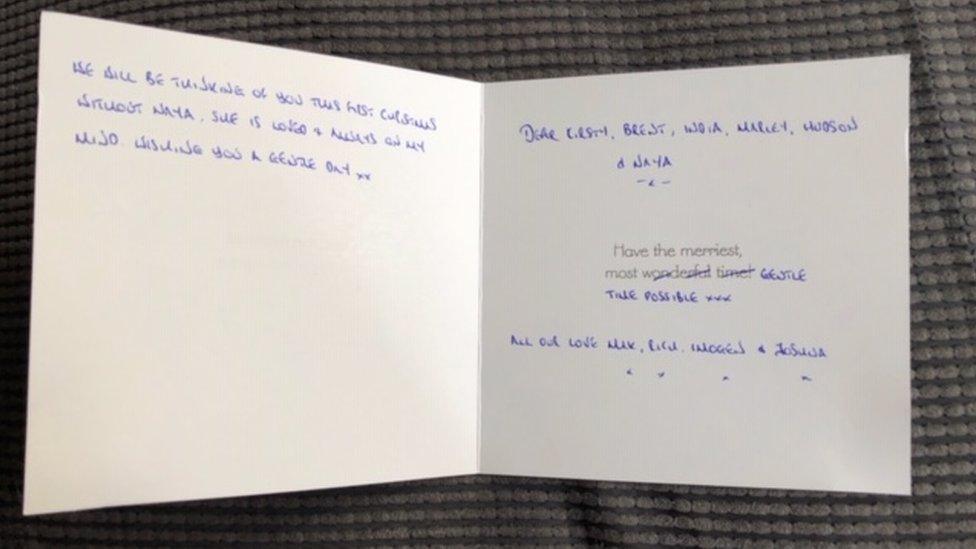 WE WILL BE THINKING OF YOU THIS FIRST CHRISTMAS
WITHOUT NAYA. SHE IS LOVED & ALWAYS ON MY
MIND. WISHING YOU A GENTLE DAY xx
DEAR KIRSTY, BRENT, INDIA, MARLEY, HUDSON
& NAYA
- x -
Have the merriest,
most wonderful time! GENTLE
TIME POSSIBLE xxx
ALL OUR LOVE MAX, RICH, IMOGEN & JOSHUA
x x x x